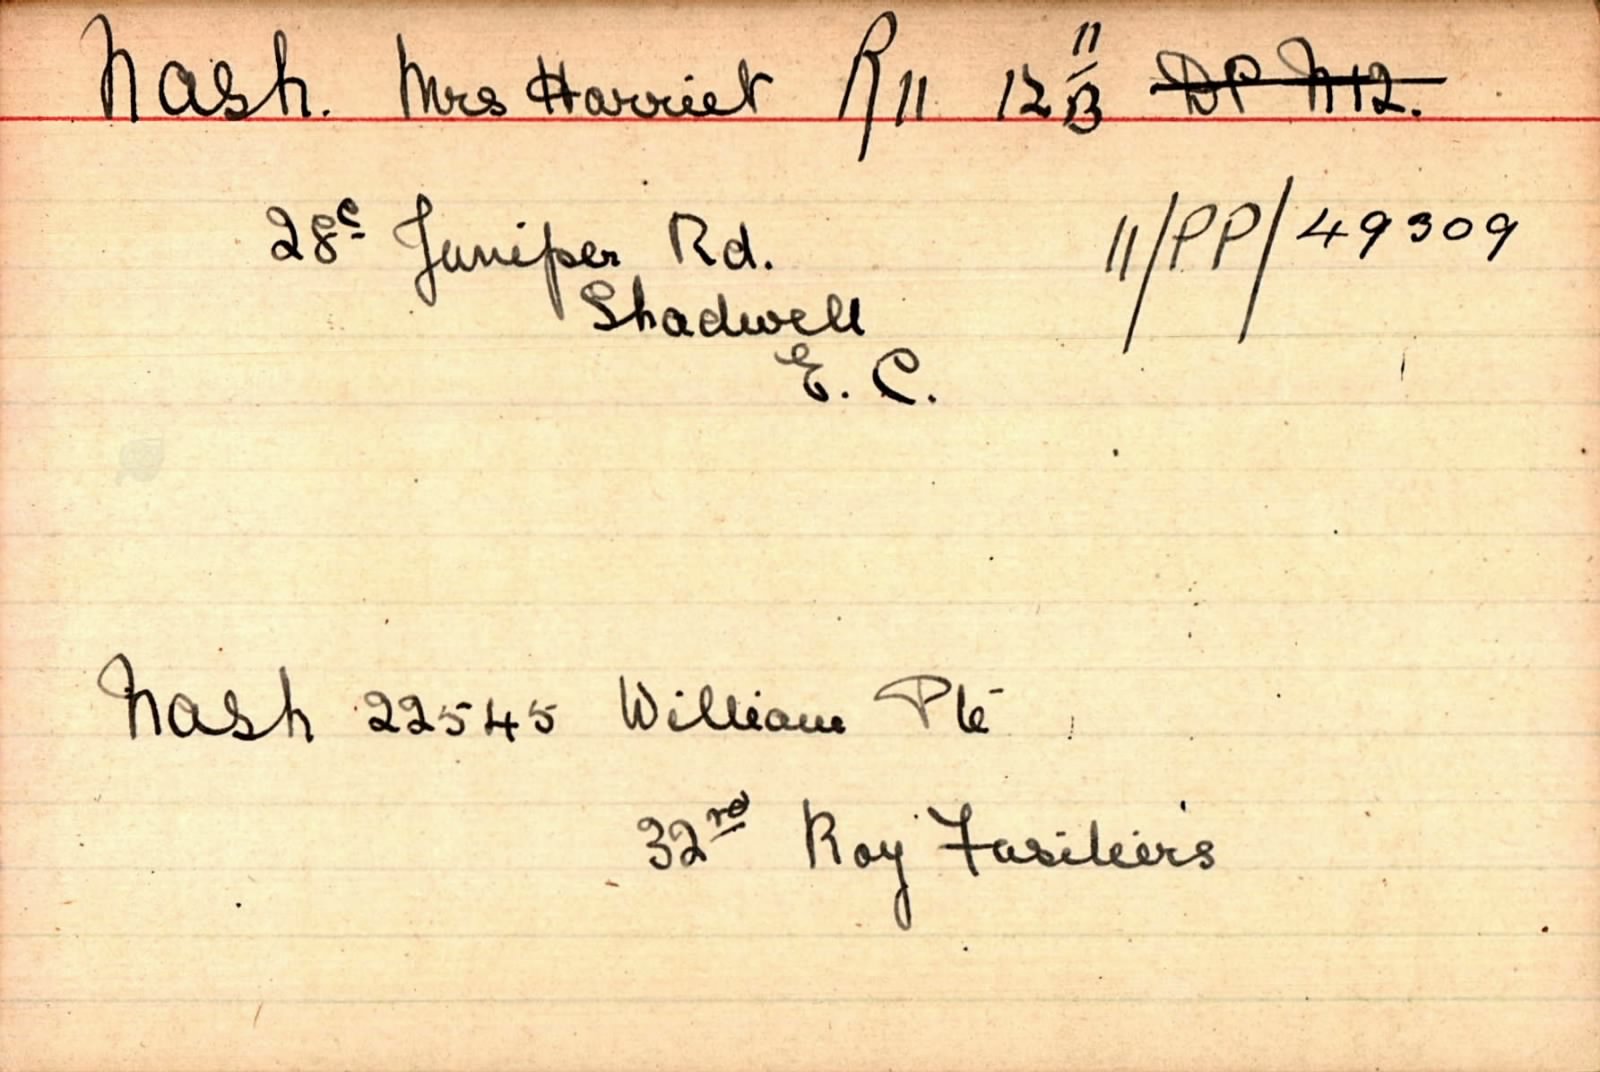 Nash. Mrs Harriet R11 12 11/B DP N12.
28c Juniper Rd. 11/PP/49309
Shadwell
E. C.
Nash 22545 William Pte
32rd Roy Fusiliers